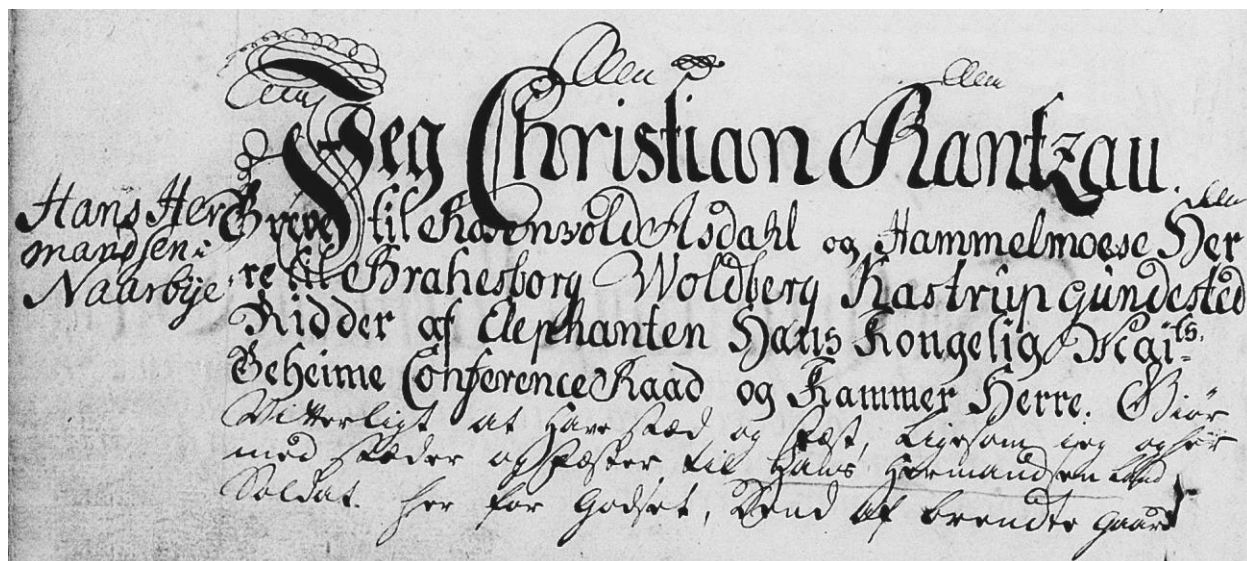 Jeg Christian Rantzau.
Hans Her
mandsen i
Naarbÿe
Greve til Rosenvold Asdahl og Hammelmoese Her
re til Brahesborg Woldberg Kastrup Gundested
Ridder af Elephanten Hans Kongelig Mai^ts.
Geheime Conference Raad og Kammer Herre. Giör
Vitterligt at have stæd og fæst, ligesom jeg og her
med stæder og fæster til Hans Hermandsen Land
Soldat. her for Godset, Send af brendte gaard